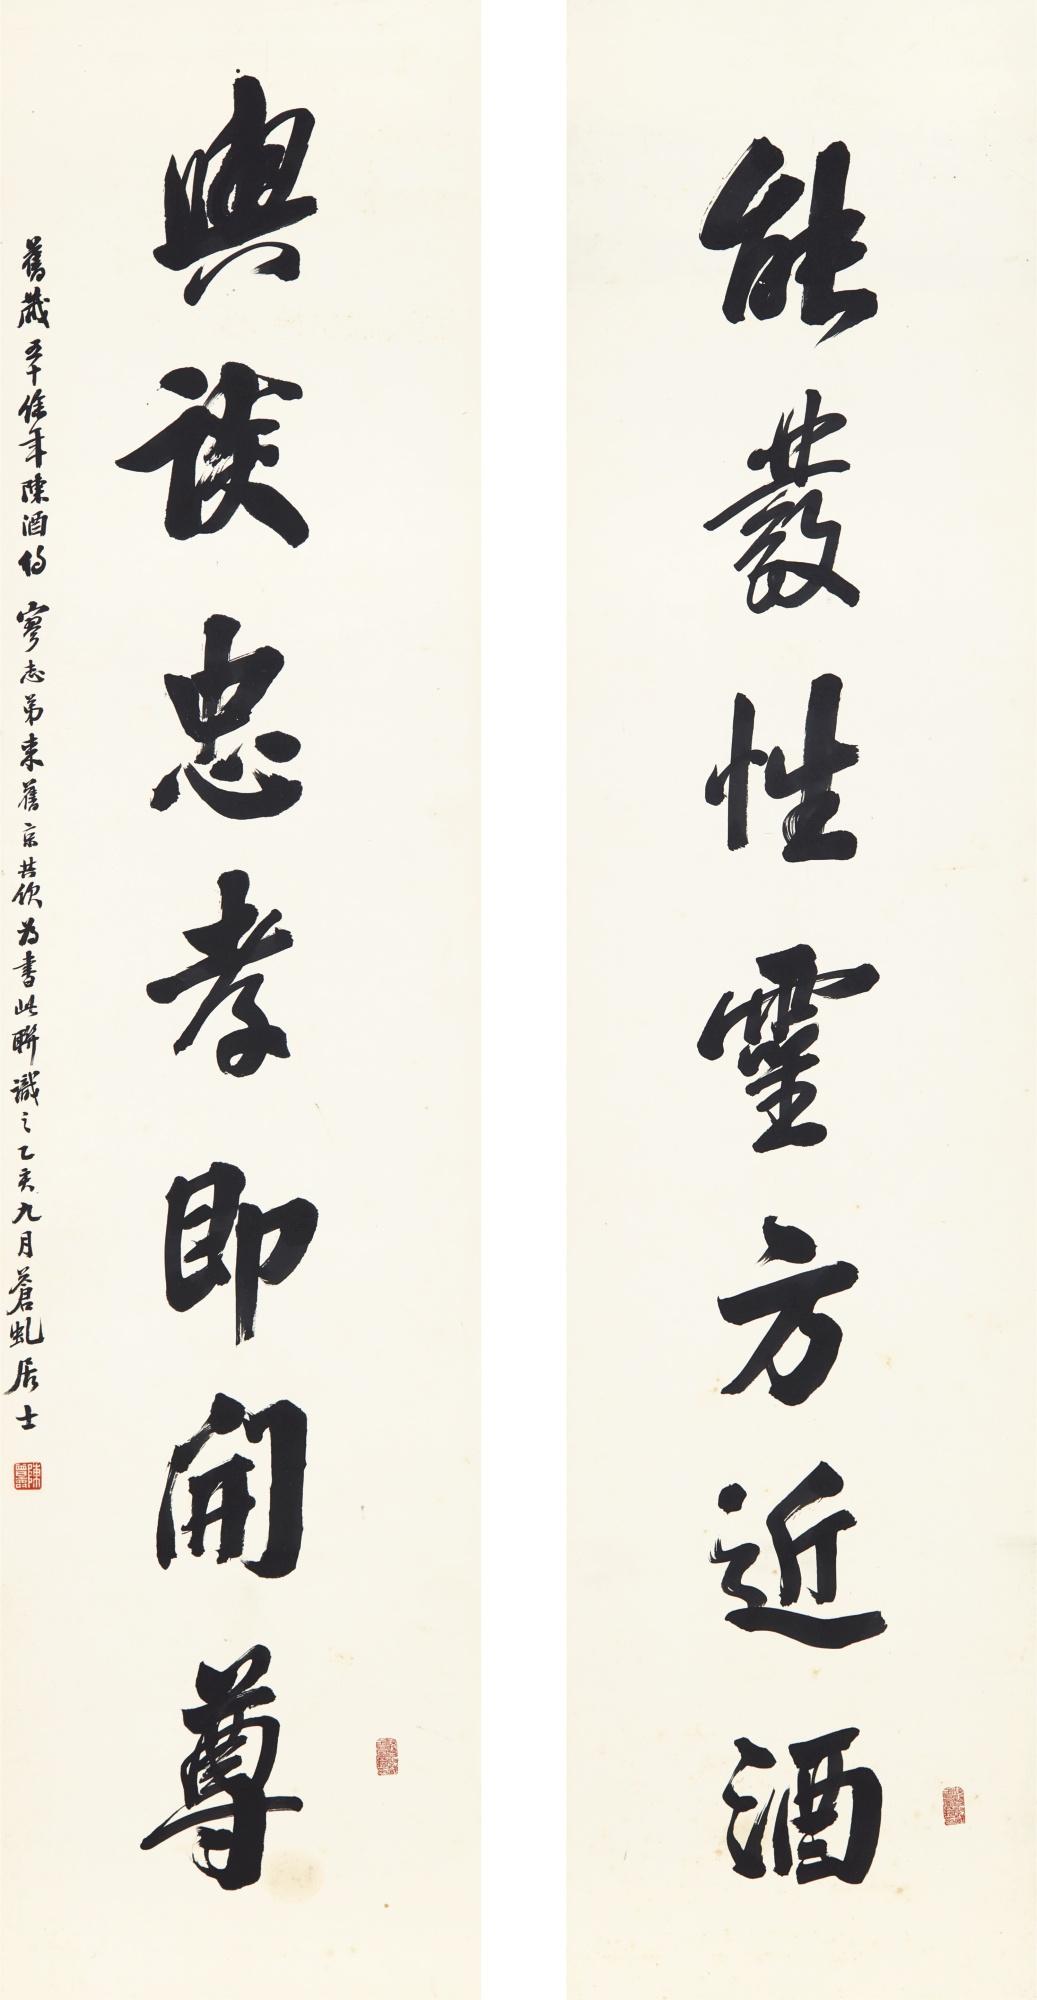 能發性靈方近酒
與談忠孝即開尊
舊藏五十餘年陳酒待 寥志弟來舊京共飲為書此聯識之乙亥九月蒼虬居士
陳曾壽